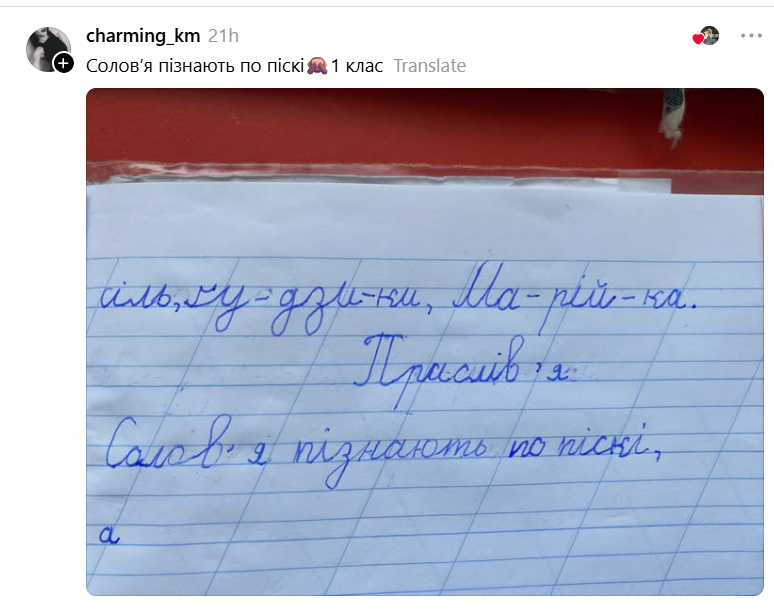 charming_km 21h
Солов’я пізнають по піскі🙊1 клас Translate
сіль, ґу-дзи-ки, Ма-рій-ка.
Праслів'я
Салов'я пізнають по піскі,
а